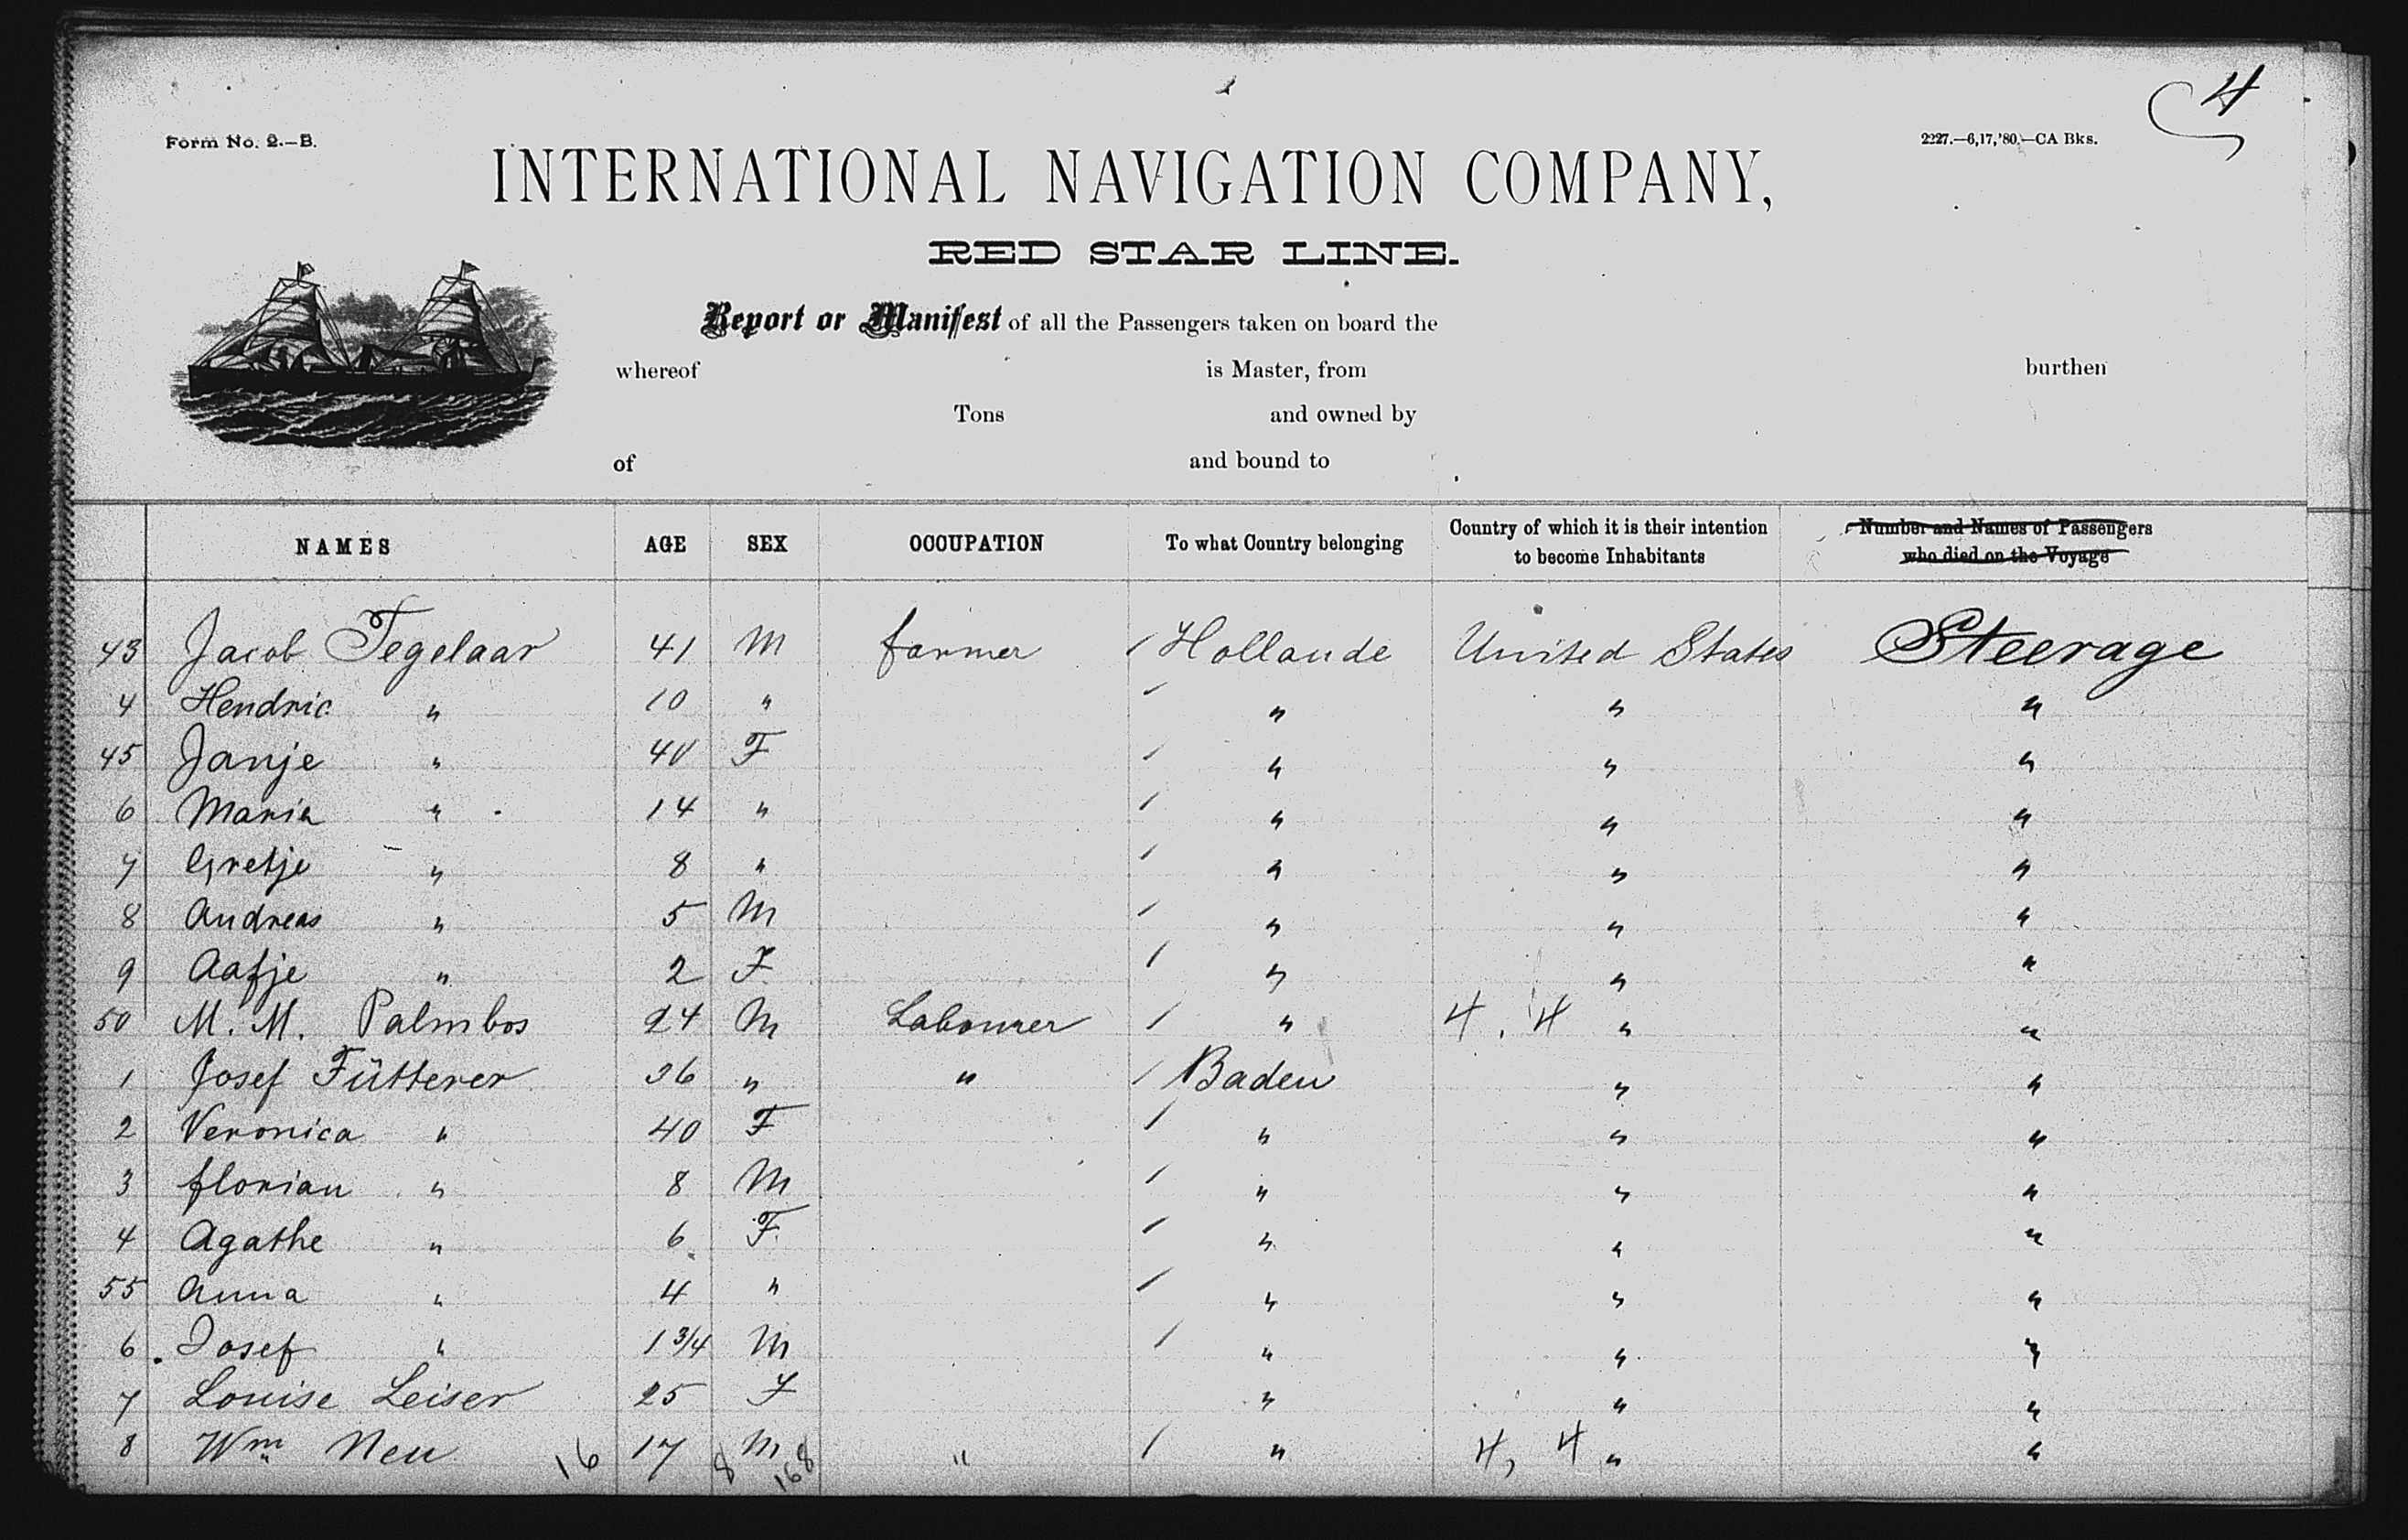 4
Form No. 2.—B.
2227.—6,17,'80.—CA Bks.
INTERNATIONAL NAVIGATION COMPANY,
RED STAR LINE.
Report or Manifest of all the Passengers taken on board the
whereof is Master, from burthen
Tons and owned by
of and bound to
NAMES AGE SEX OCCUPATION To what Country belonging Country of which it is their intention to become Inhabitants Number and Names of Passengers who died on the Voyage
43 Jacob Tegelaar 41 M farmer / Hollande United States Steerage
4 Hendric " 10 " / " " "
45 Janje " 40 F / " " "
6 Maria " 14 " / " " "
7 Gretje " 8 " / " " "
8 Andreas " 5 M / " " "
9 Aafje " 2 F / " " "
50 M. M. Palmbos 24 M Labourer / " 4. 4 " "
1 Josef Fütterer 36 " " / Baden " "
2 Veronica " 40 F / " " "
3 florian " 8 M / " " "
4 Agathe " 6 F / " " "
55 Anna " 4 " / " " "
6 Josef " 1 3/4 M / " " "
7 Louise Leiser 25 F " " "
8 Wm Neu 16 17 8 M 168 " / " 4, 4 " "